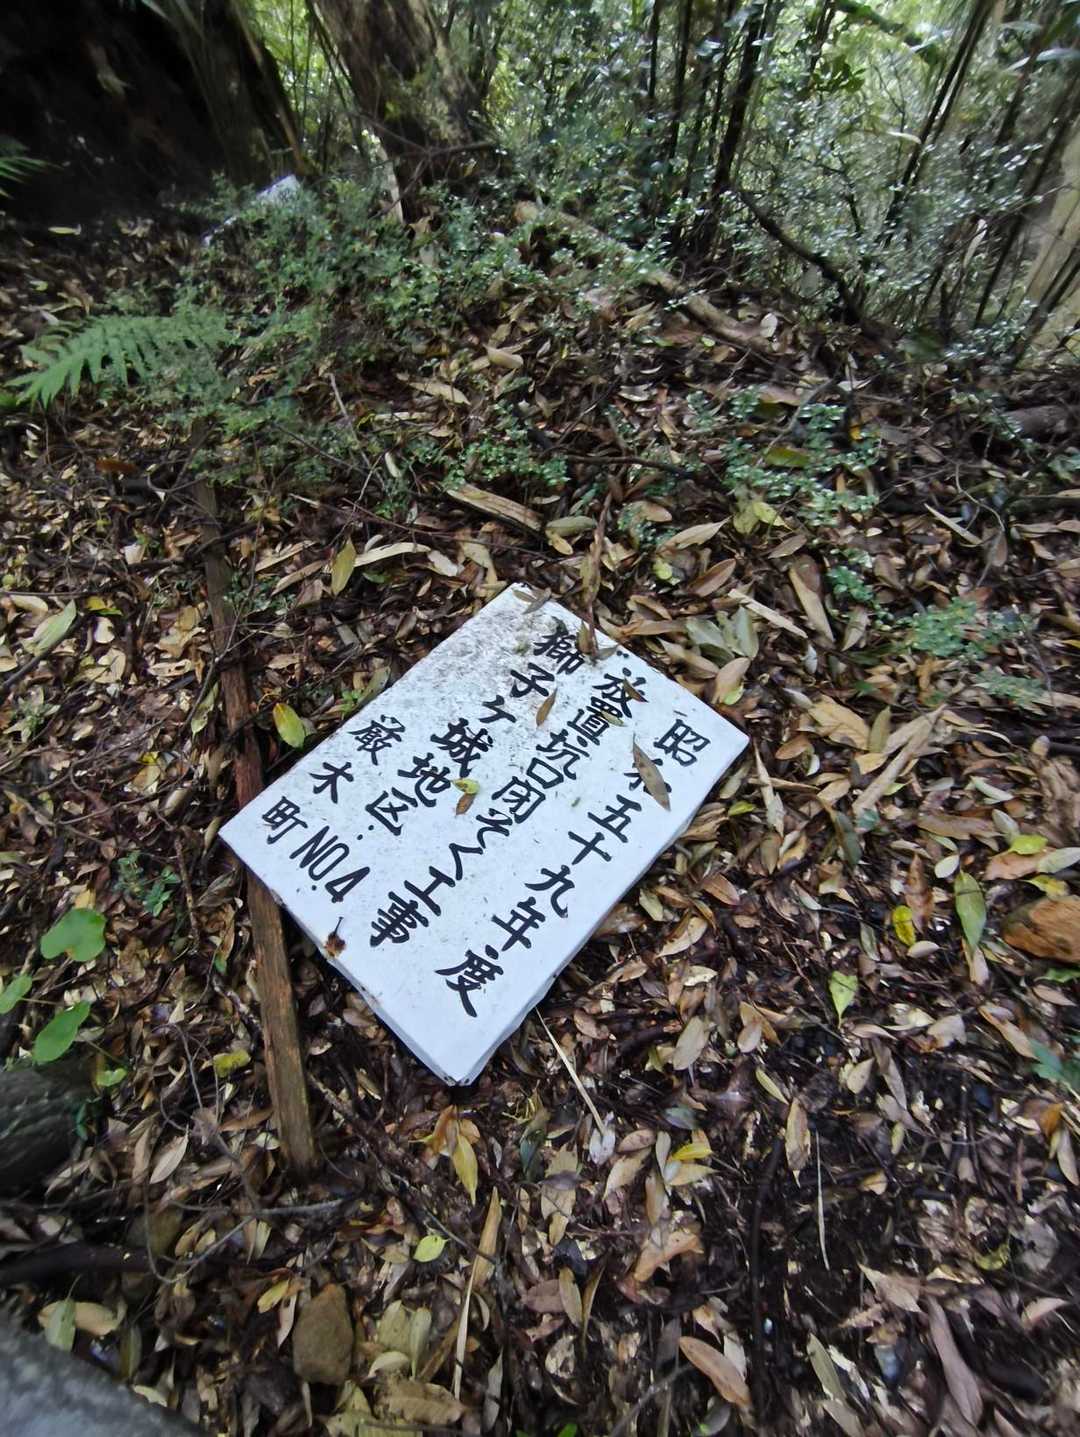 昭和五十九年度
放置坑口閉そく工事
獅子ヶ城地区
厳木町NO.4